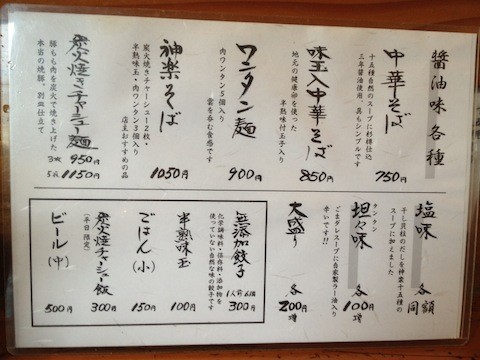 醤油味各種
中華そば
十五種自然のスープに杉樽仕込
三年醤油使用。具もシンプルです
750円
味玉入中華そば
地元の健康卵を使った
半熟味付玉子入り
850円
ワンタン麺
肉ワンタン5個入り
雲を呑む食感です
900円
神楽そば
炭火焼きチャーシュー2枚・
半熟味玉・肉ワンタン3個入り
店主おすすめの品
1050円
炭火焼きチャーシュー麺
豚もも肉を炭火で焼き上げた
本当の焼豚。別皿仕立て
3枚 950円
5枚 1150円
塩味
干し貝柱のだしを神楽十五種の
スープに加えました
各同額
坦々味
タンタン
ごまダレスープに自家製ラー油入り
辛いです!!
各100円増
大盛り
各200円増
無添加餃子
化学調味料・保存料・添加物を
使っていない自然な味の餃子です
1人前6個
300円
半熟味玉
100円
ごはん(小)
150円
炭火焼チャーシュー飯
(平日限定)
300円
ビール(中)
500円